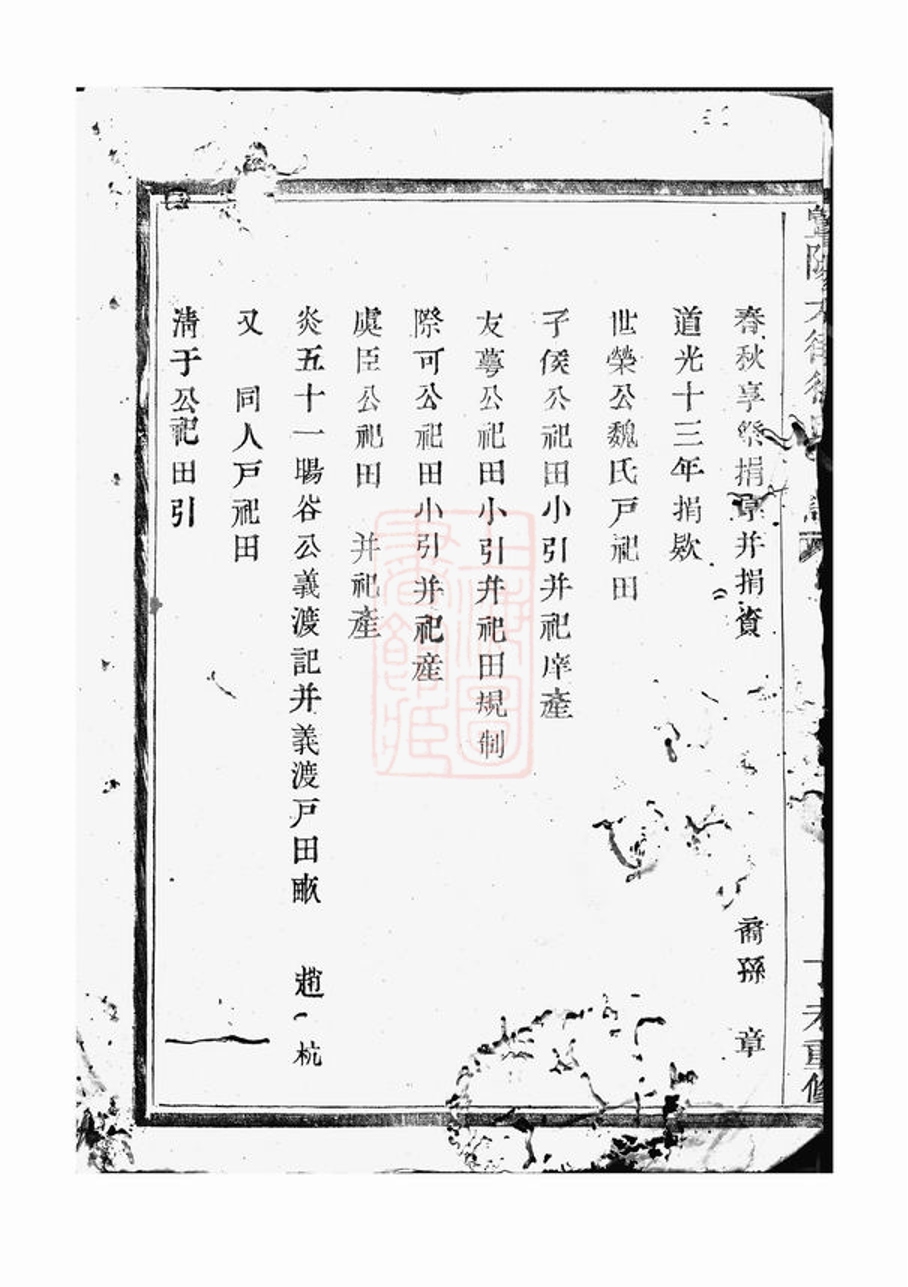 春秋享祭捐原并捐資 裔孫 章
道光十三年捐欵
世榮公魏氏戸祀田
子侯公祀田小引并祀庠產
友蕚公祀田小引并祀田規制
際可公祀田小引并祀産
虞臣公祀田 并祀產
炎五十一暘谷公義渡記并義渡戸田畝 趙 杭
又 同人戸祀田
淸于公祀田引
上海圖書館藏
未重修